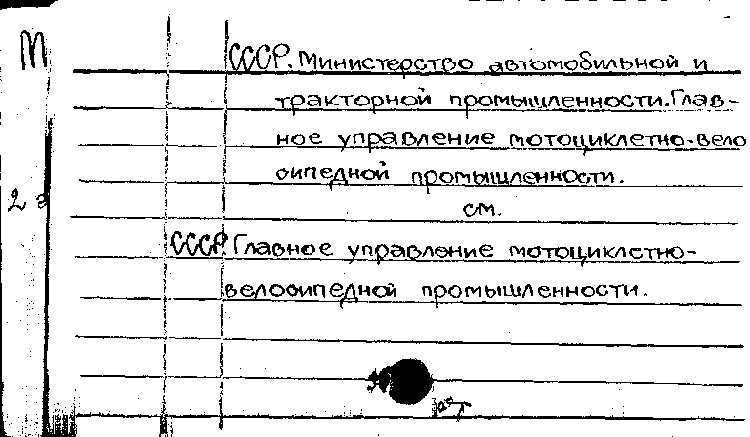 М
СССР. Министерство автомобильной и
тракторной промышленности. Глав-
ное управление мотоциклетно-вело
сипедной промышленности.
2
см.
СССР. Главное управление мотоциклетно-
велосипедной промышленности.